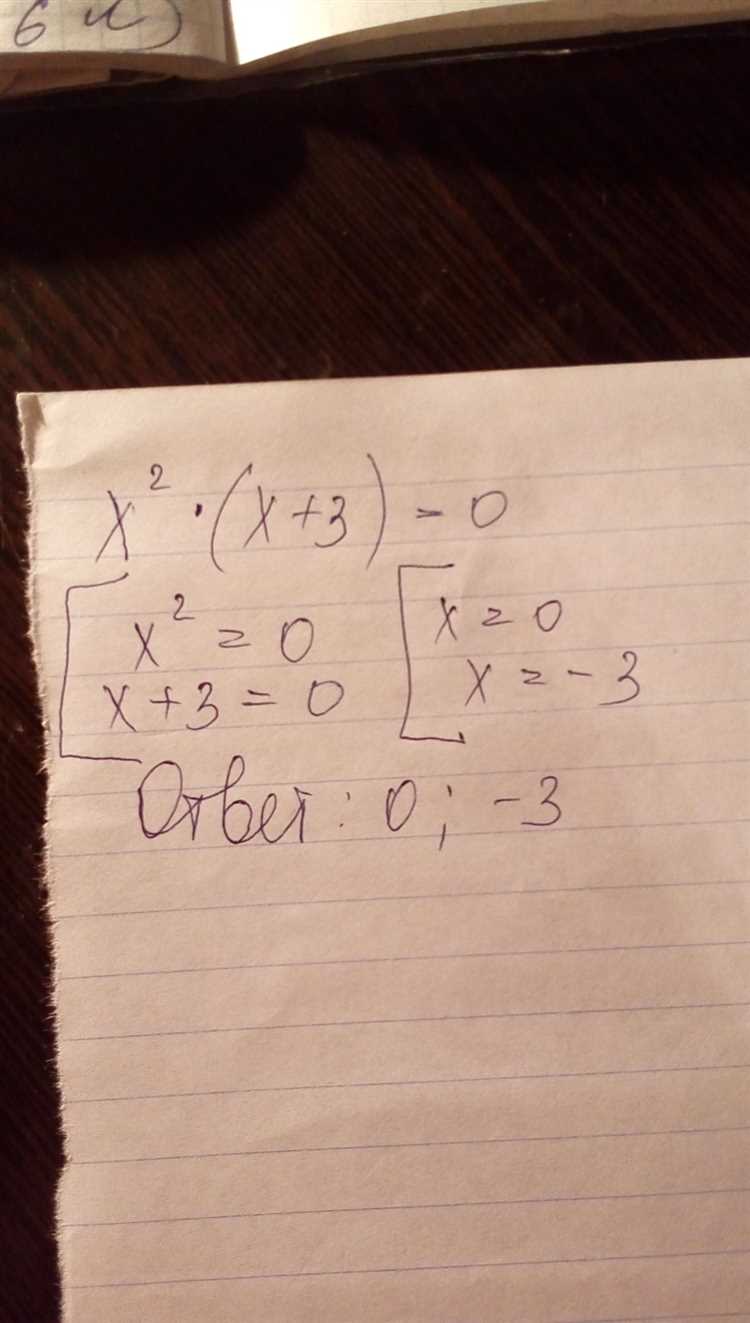 x² · (x+3) = 0
x² = 0 x = 0
x+3 = 0 x = -3
Ответ: 0; -3